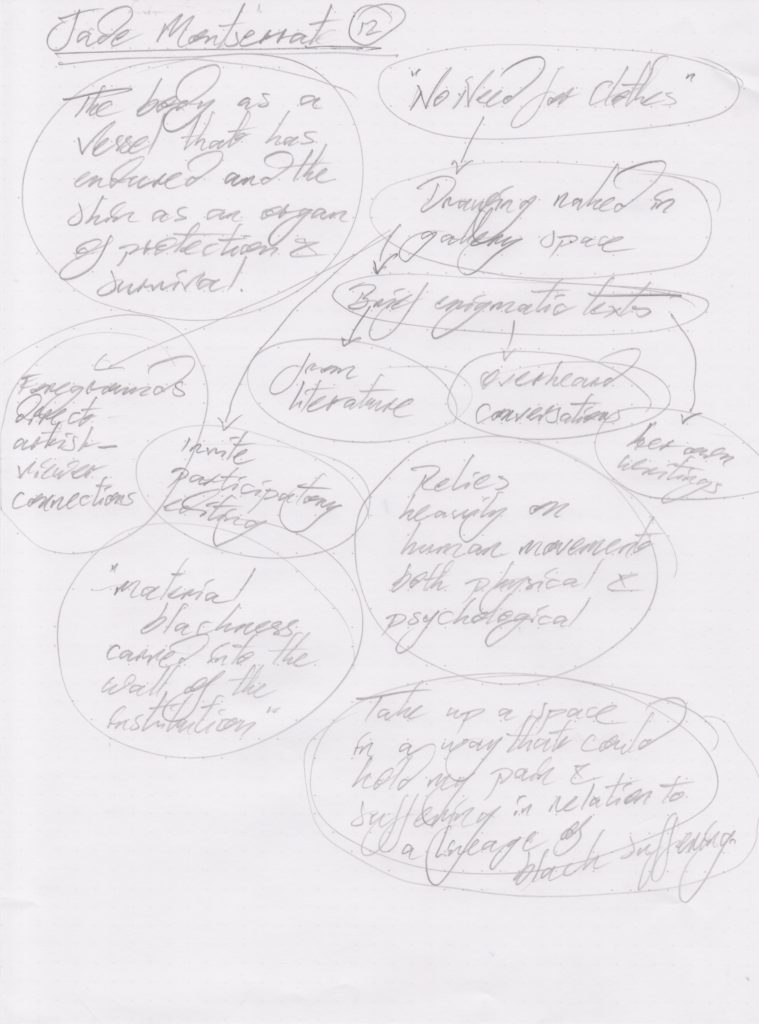 Jade Montserrat 12
The body as a
vessel that has
endured and the
skin as an organ
of protection &
survival.
"No Need for Clothes"
Drawing naked in
gallery space
Brief enigmatic texts
from
literature
overheard
conversations
her own
writings
Foregrounds
direct
artist–
viewer
connections
invite
participatory
editing
Relies
heavily on
human movements
both physical &
psychological
"material
blackness
carved into the
wall of the
institution"
Take up a space
in a way that could
hold my pain &
suffering in relation to
a lineage of
black suffering.